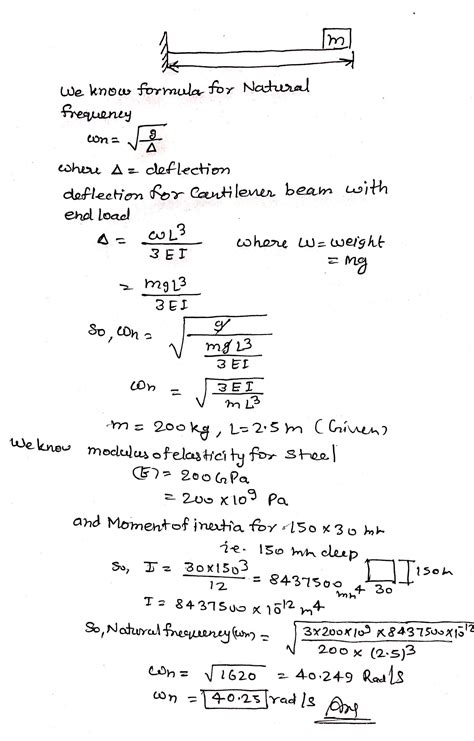 m
We know formula for Natural
frequency
ωn = √(g/Δ)
where Δ = deflection
deflection for Cantilever beam with
end load
Δ = ωL³/3EI where W = weight
= mg
= mgL³/3EI
So, ωn = √(g/(mgL³/3EI))
ωn = √(3EI/mL³)
m = 200 kg, L = 2.5 m (Given)
We know modulus of elasticity for steel
(E) = 200 GPa
= 200 × 10⁹ Pa
and Moment of inertia for 150 × 30 mm
i.e. 150 mm deep
So, I = 30×150³/12 = 8437500 mm⁴ 30 150
I = 8437500 × 10⁻¹² m⁴
So, Natural frequency (ωn) = √(3×200×10⁹ × 8437500×10⁻¹²/200 × (2.5)³)
ωn = √1620 = 40.249 Rad/s
ωn = 40.25 rad/s Ans